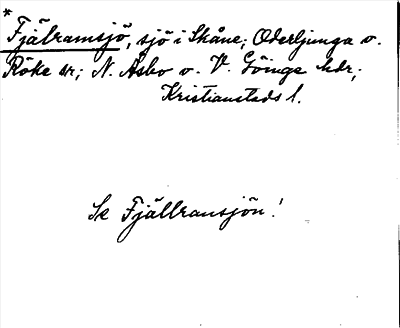 *
Fjälramsjö, sjö i Skåne; Oderljunga o.
Röke sr; N. Åsbo o. V. Göinge hdr;
Kristianstads l.
Se Fjällransjön!